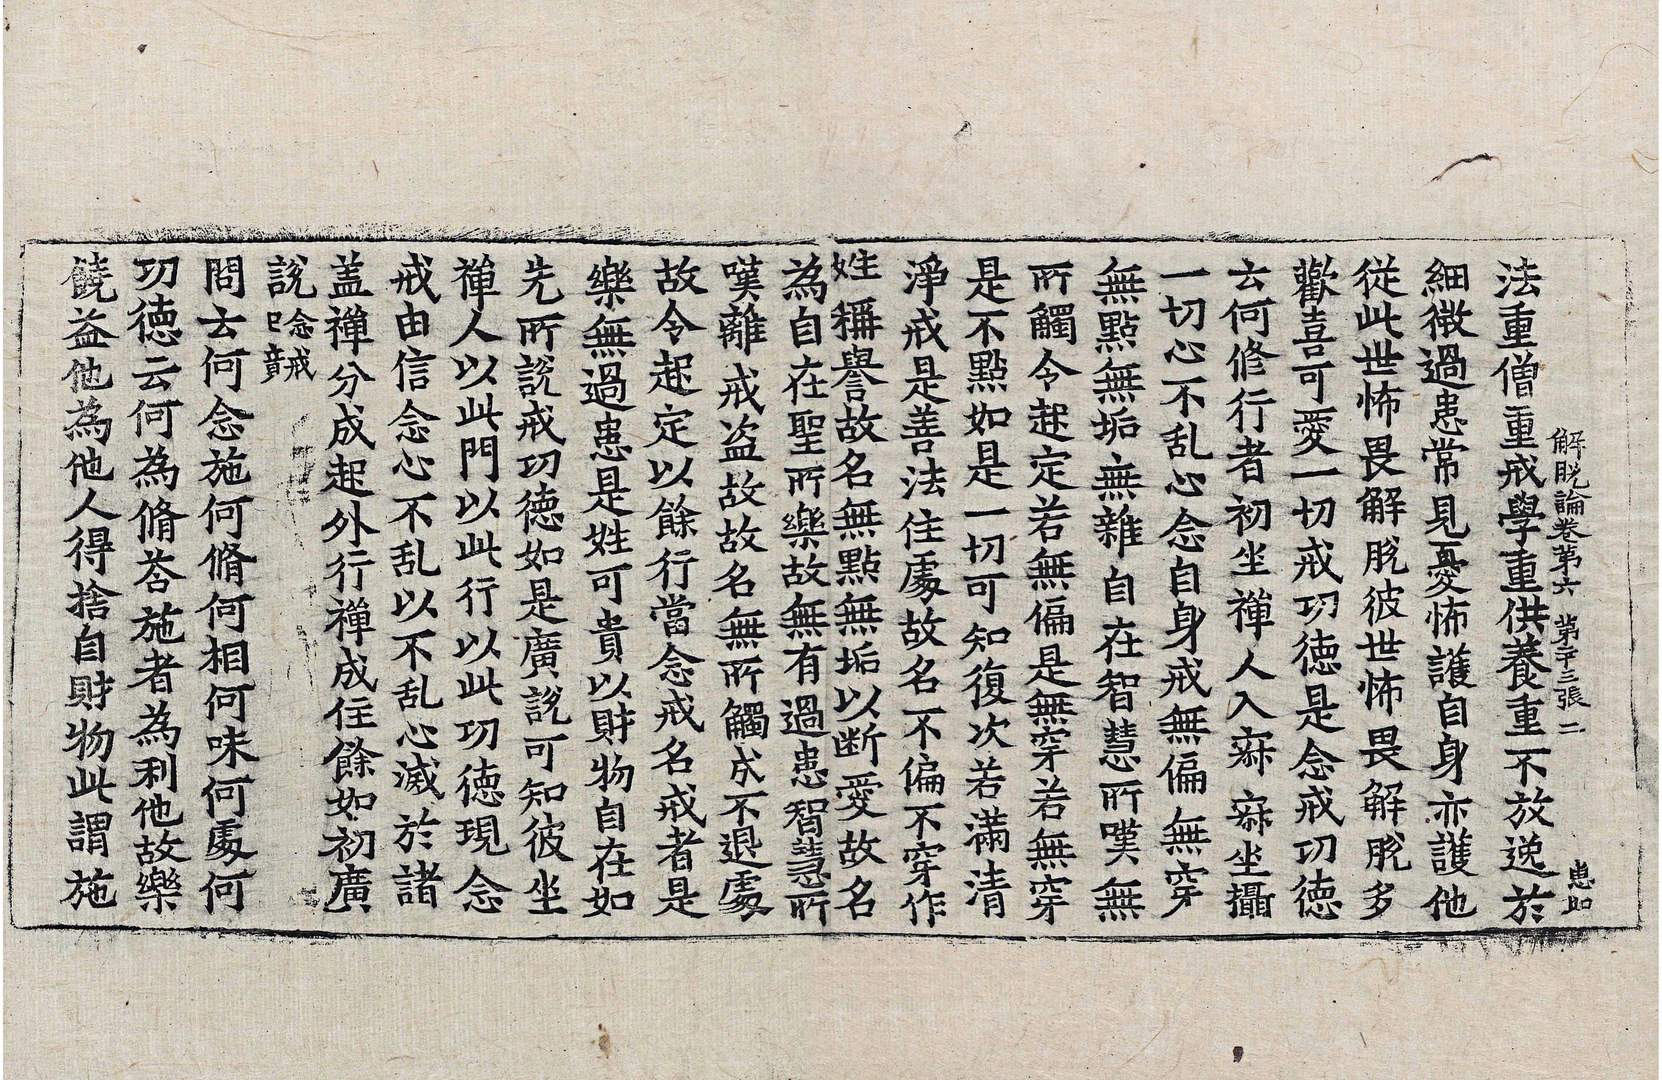 解脫論卷第六 第二十三張 二
法重僧重戒學重供養重不放逸於
細微過患常見憂怖護自身亦護他
從此世怖畏解脫彼世怖畏解脫多
歡喜可愛一切戒功德是念戒功德
云何修行者初坐禪人入寂寂坐攝
一切心不乱心念自身戒無偏無穿
無點無垢無雜自在智慧所嘆無
所觸令起定若無偏是無穿若無穿
是不點如是一切可知復次若滿清
淨戒是善法住處故名不偏不穿作
姓稱譽故名無點無垢以断愛故名
為自在聖所樂故無有過患智慧所
嘆離戒盗故故名無所觸成不退處
故令起定以餘行當念戒名戒者是
樂無過患是姓可貴以財物自在如
先所說戒功德如是廣說可知彼坐
禪人以此門以此行以此功德現念
戒由信念心不乱以不乱心滅於諸
盖禪分成起外行禪成住餘如初廣
說念戒已竟
問云何念施何脩何相何味何處何
功德云何為脩荅施者為利他故樂
饒益他為他人得捨自財物此謂施